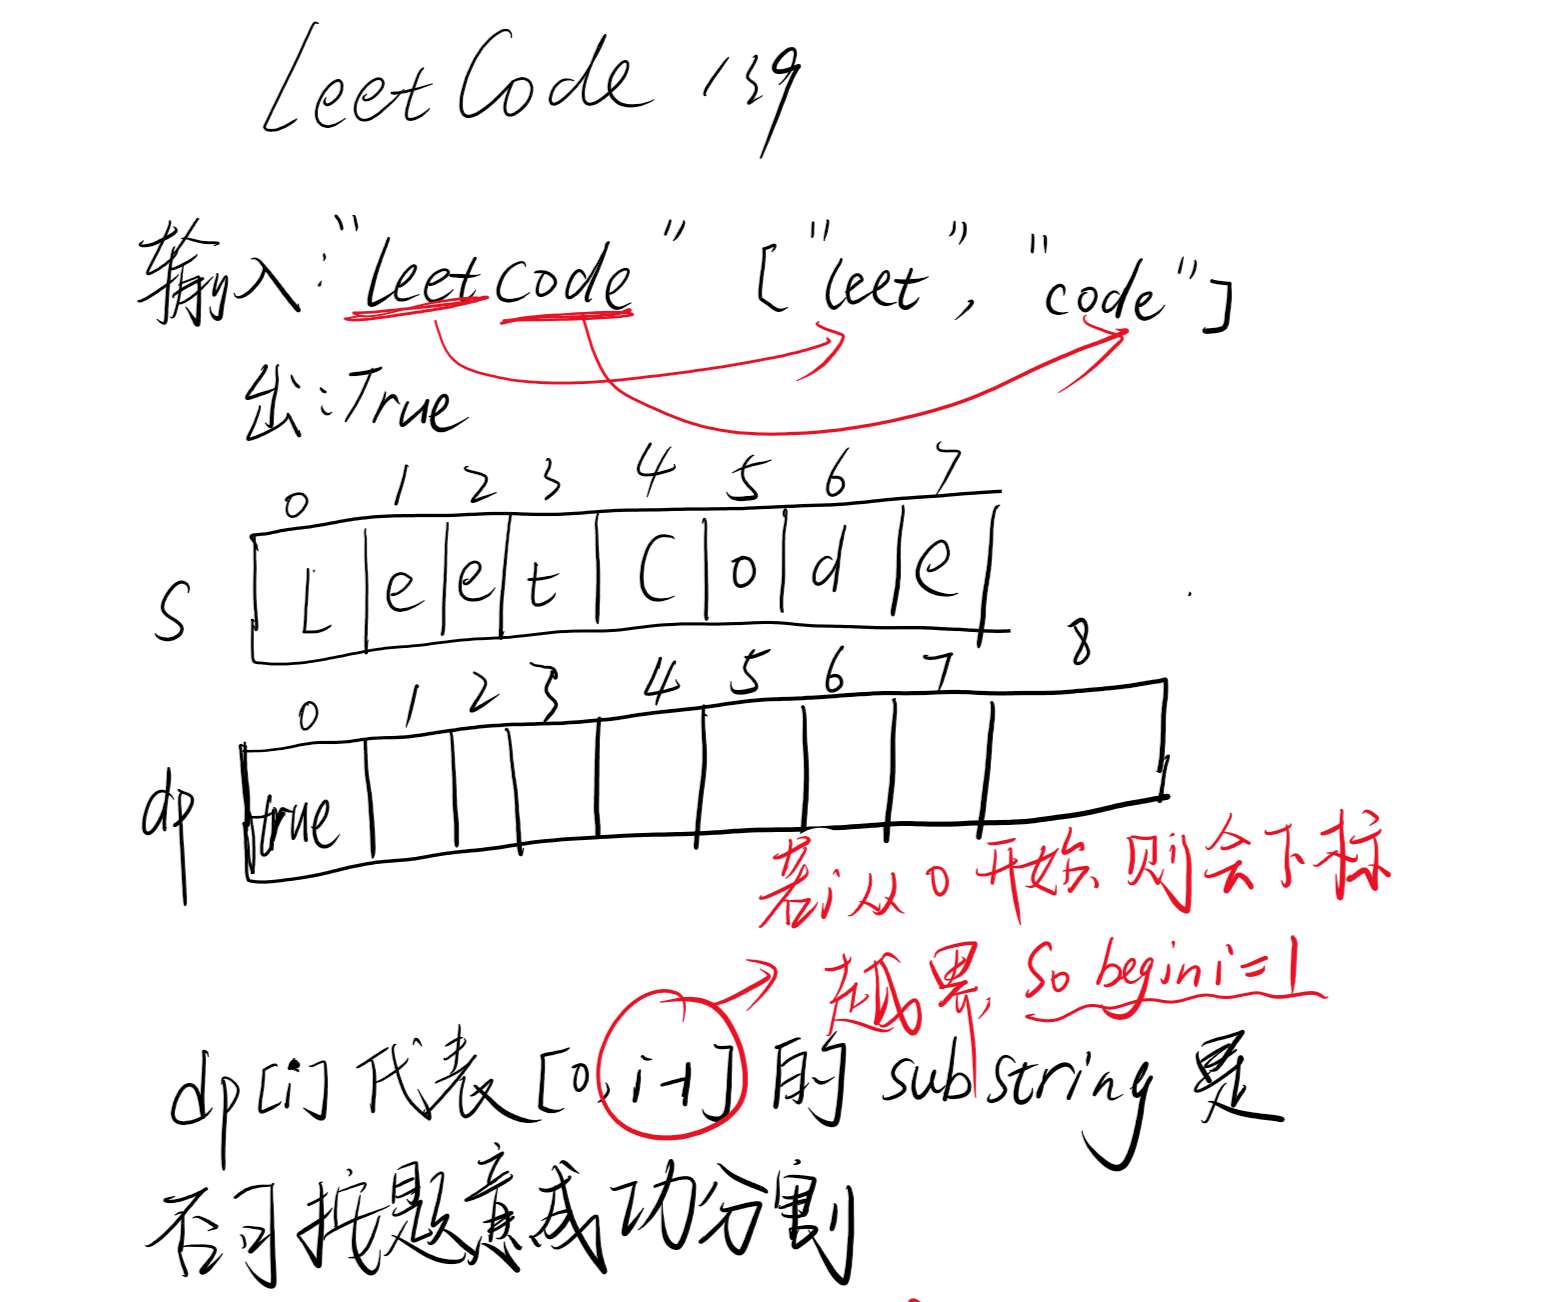 LeetCode 139
输入:"leetcode" ["leet", "code"]
出:True
0 1 2 3 4 5 6 7
S L e e t C o d e
0 1 2 3 4 5 6 7 8
dp true
若i从0开始则会下标
越界, So begin i=1
dp[i]代表[0,i-1]的substring是
否可按题意成功分割